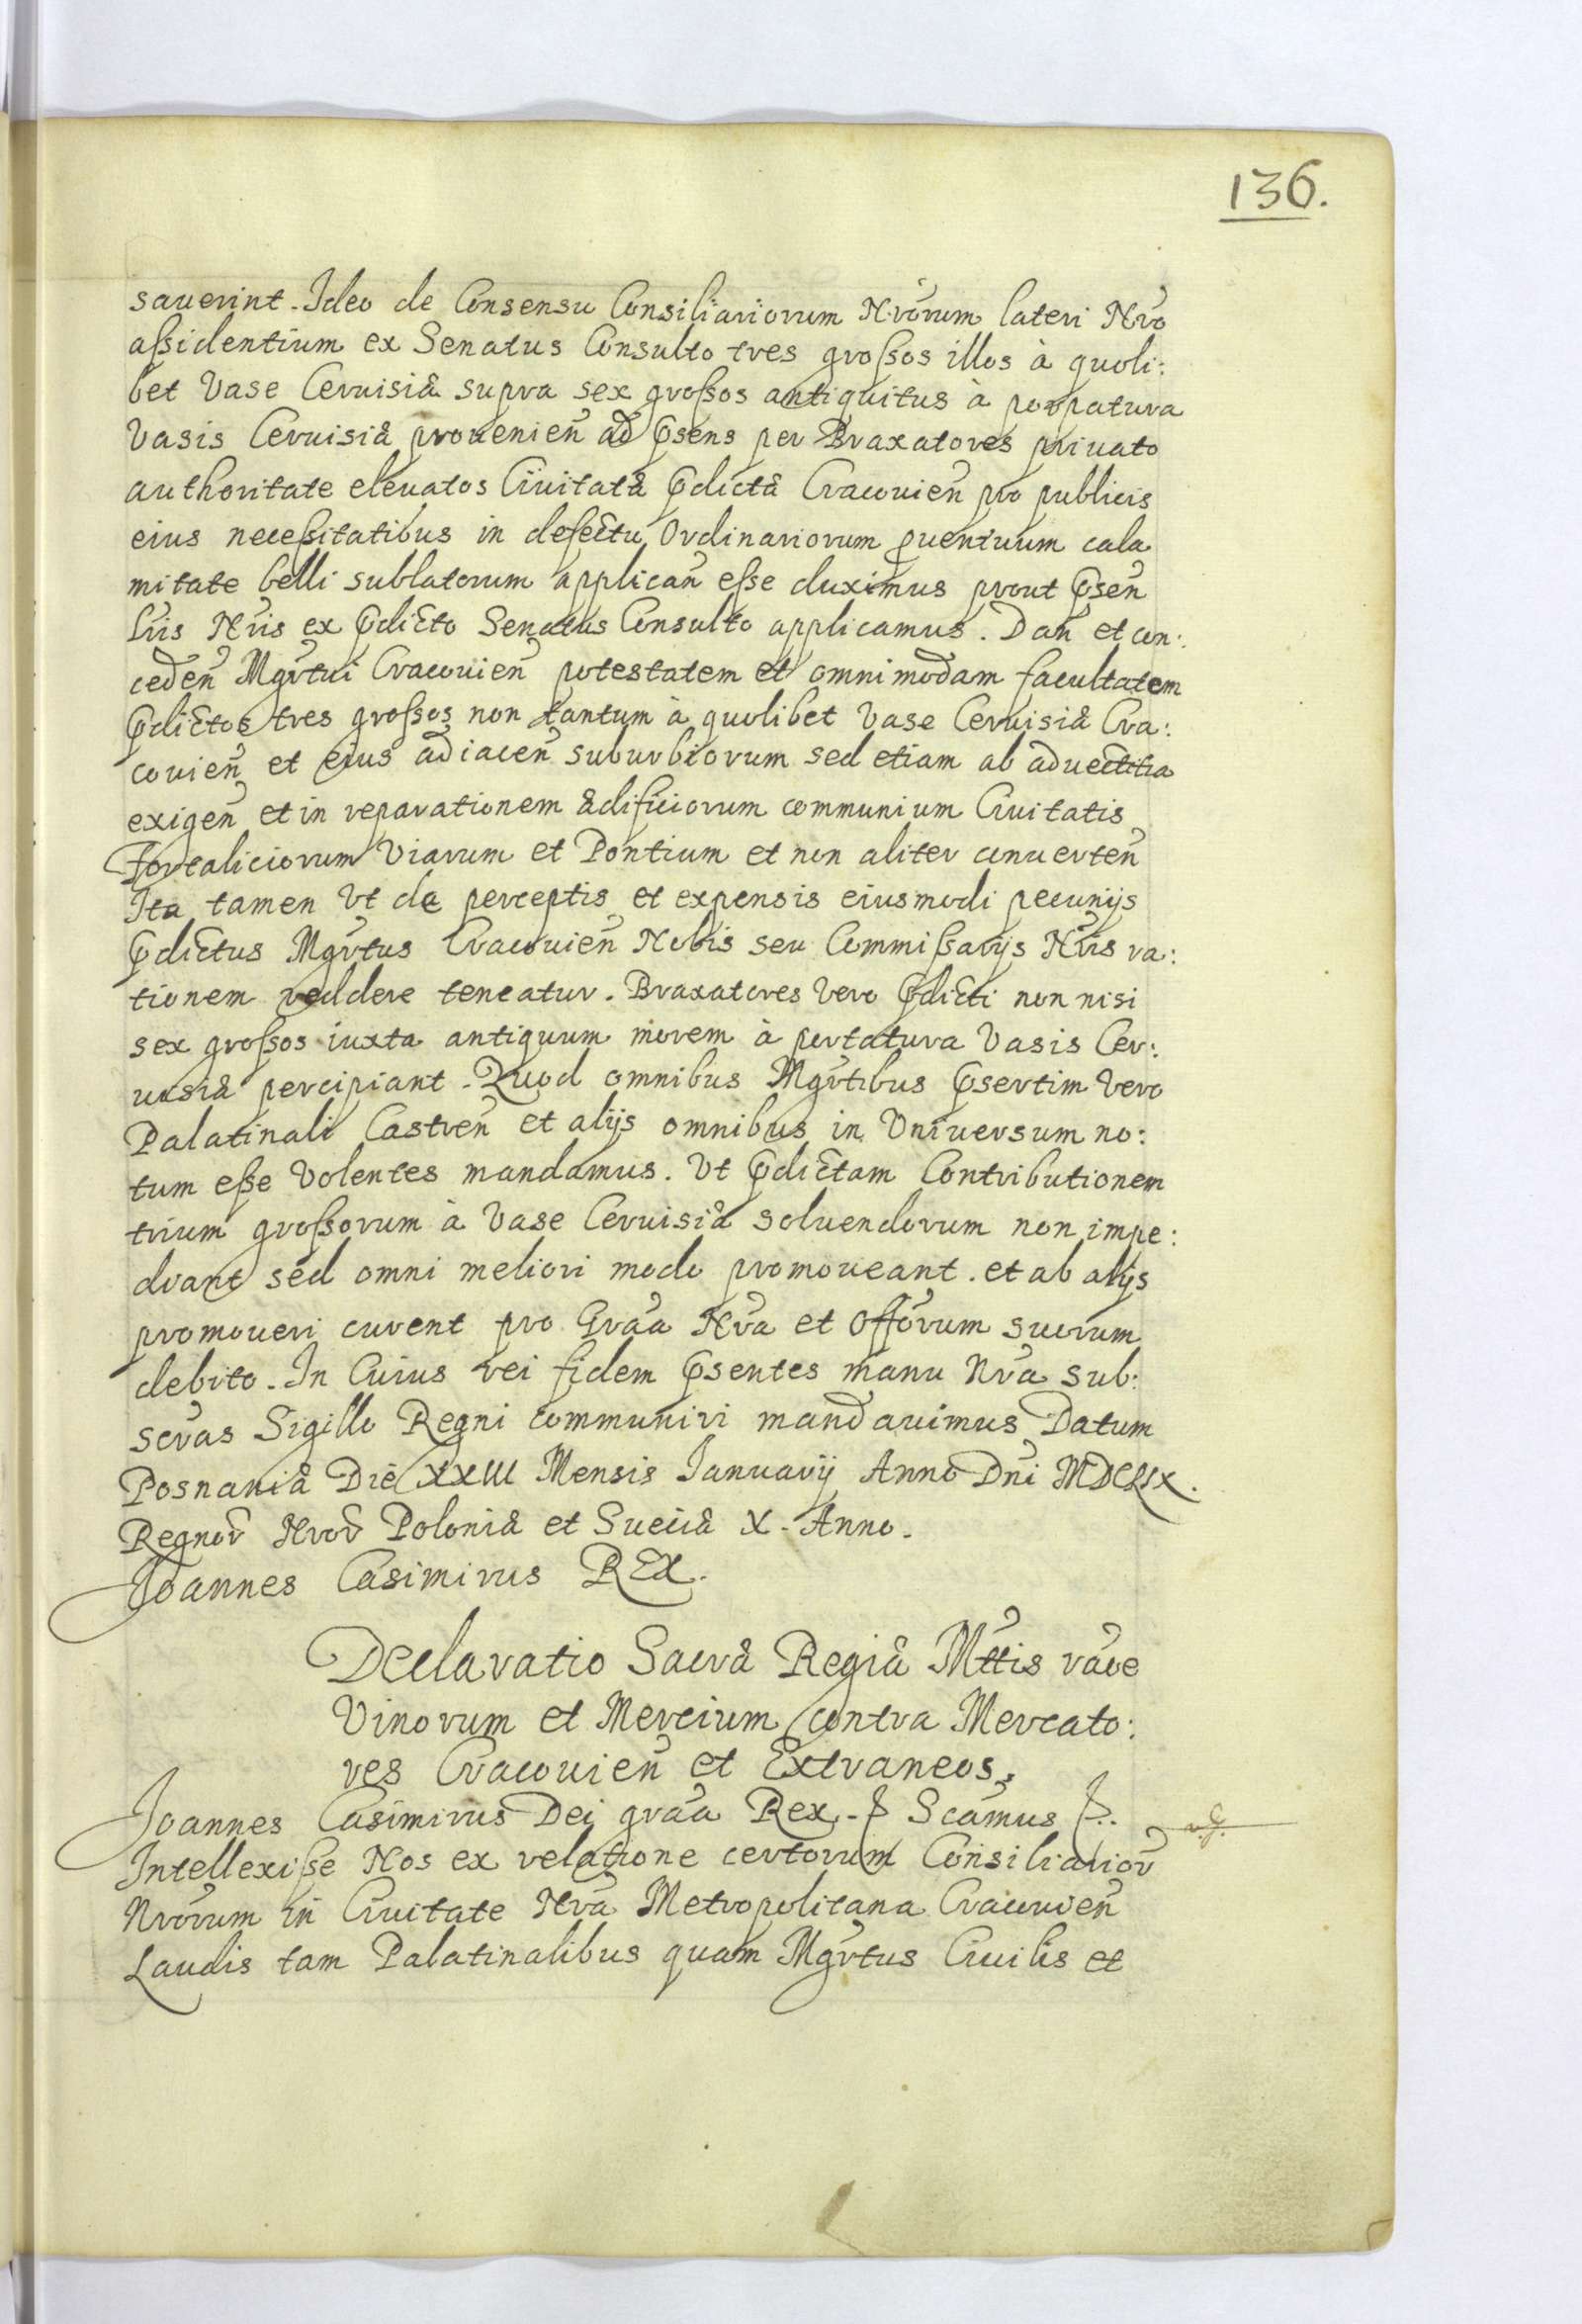 136.
sauerint. Ideo de Consensu Consiliariorum Nrõrum lateri Nrõ
aßidentium ex Senatus Consulto tres großos illos à quoli:
bet Vase Ceruisiæ supra sex großos antiquitus à porpatura
Vasis Ceruisiæ prouenieñ ad p̃sens per Braxatores priuato
authoritate eleuatos Ciuitatæ p̃dictæ Cracouieñ pro publicis
eius neceßitatibus in defectu Ordinariorum ꝓuentuum cala
mitate belli sublatorum applicañ eße duximus prout p̃señ
Lr̃is Nr̃is ex p̃dicto Senatus Consulto applicamus. Dañ et con:
cedeñ Mgr̃tui Cracouieñ potestatem et omnimodam facultatem
p̃dictos tres großos non tantum à quolibet Vase Ceruisiæ Cra:
couieñ et eius adiaceñ suburbiorum sed etiam ab aduectitia
exigeñ et in reparationem ædificiorum communium Ciuitatis
Fortaliciorum Viarum et Pontium et non aliter conuerteñ
Ita tamen Vt de perceptis et expensis eiusmodi pecunijs
p̃dictus Mgr̃tus Cracouieñ Nobis seu Commißarijs Nr̃is ra:
tionem reddere teneatur. Braxatores Vero p̃dicti non nisi
sex großos iuxta antiquum morem à portatura Vasis Cer:
uisiæ percipiant. Quod omnibus Mgr̃tibus p̃sertim Vero
Palatinali Castreñ et alijs omnibus in Vniuersum no:
tum eße Volentes mandamus. Vt p̃dictam Contributionem
trium großorum à Vase Ceruisiæ soluendorum non impe:
diant sed omni meliori modo promoueant. et ab alijs
promoueri curent pro Grãa Nrã et Offõrum suorum
debito. In Cuius rei fidem p̃sentes manu Nrã sub:
scr̃as Sigillo Regni communiri mandauimus Datum
Posnaniæ Die XXIII Mensis Ianuarij Anno Dñi MDCLIX.
Regnor̃ Nror̃ Poloniæ et Sueciæ X. Anno.
Joannes Casimirus REX.
Declaratio Sacræ Regiæ Mttis rãoe
Vinorum et Mercium contra Mercato:
res Cracouieñ et Extraneos.
Joannes Casimirus Dei grãa Rex. Scãmus
Intellexiße Nos ex relatione certorum Consiliarior̃
Nrõrum in Ciuitate Nrã Metropolitana Cracouieñ
Laudis tam Palatinalibus quam Mgr̃tus Ciuilis et